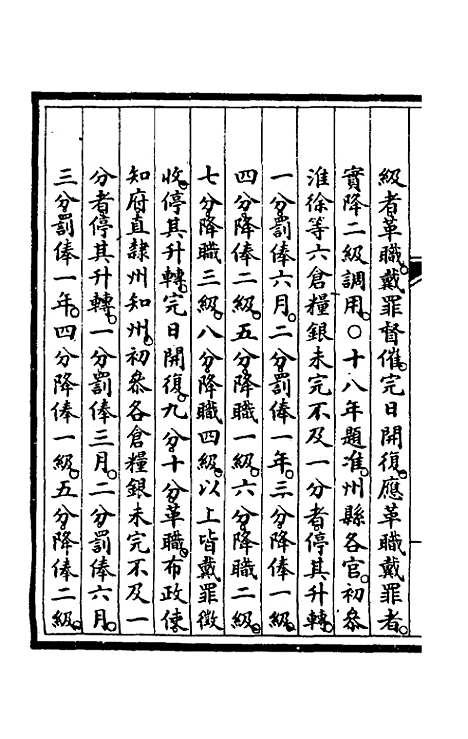 級者革職戴罪督催。完日開復。應革職戴罪者。
實降二級調用。○十八年題准。州縣各官。初參
淮徐等六倉糧銀未完不及一分者停其升轉。
一分罰俸六月。二分罰俸一年。三分降俸一級。
四分降俸二級。五分降職一級。六分降職二級。
七分降職三級。八分降職四級。以上皆戴罪徵
收。停其升轉。完日開復。九分十分革職。布政使
知府直隸州知州。初參各倉糧銀未完不及一
分者停其升轉。一分罰俸三月。二分罰俸六月。
三分罰俸一年。四分降俸一級。五分降俸二級。